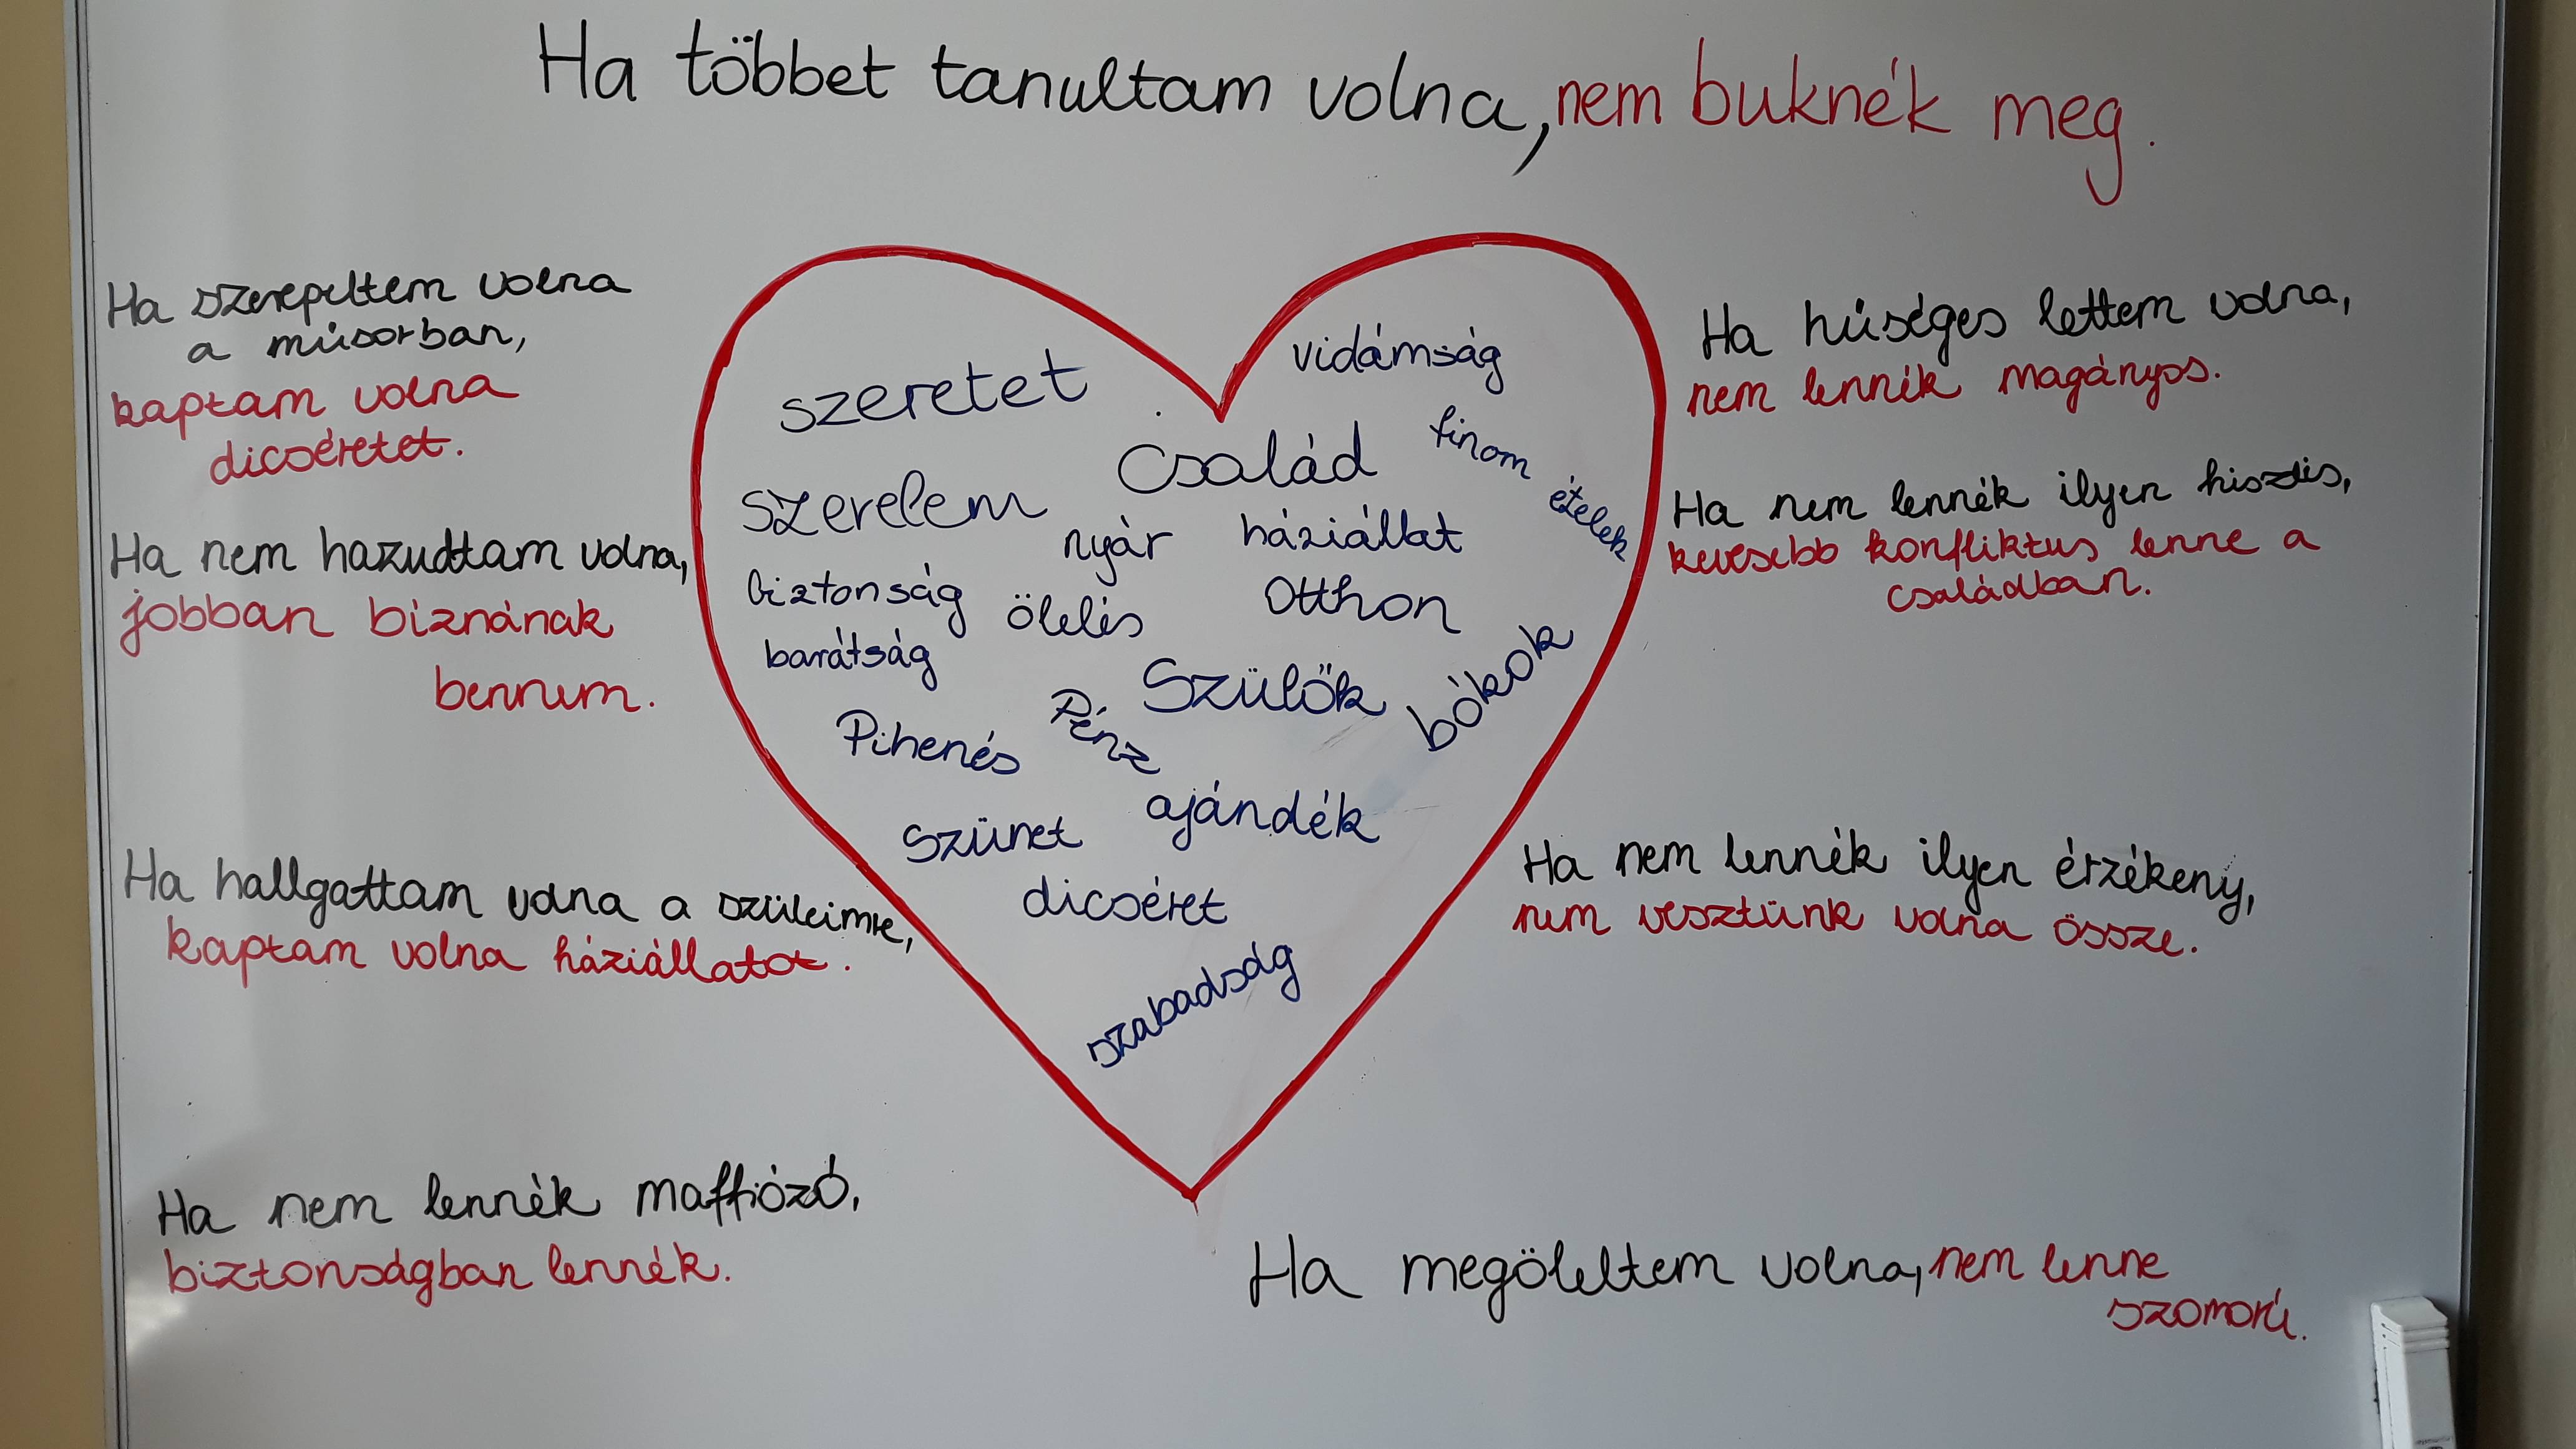 Ha többet tanultam volna, nem buknék meg.
Ha szerepeltem volna
a műsorban,
kaptam volna
dicséretet.
Ha nem hazudtam volna,
jobban bíznának
bennem.
Ha hallgattam volna a szüleimre,
kaptam volna háziállatot.
Ha nem lennék maffiózó,
biztonságban lennék.
szeretet
vidámság
Család
finom ételek
szerelem
nyár
háziállat
biztonság
ölelés
Otthon
barátság
Szülők
bókok
Pénz
Pihenés
ajándék
Szünet
dicséret
szabadság
Ha hűséges lettem volna,
nem lennék magányos.
Ha nem lennék ilyen hisztis,
kevesebb konfliktus lenne a
családban.
Ha nem lennék ilyen érzékeny,
nem vesztünk volna össze.
Ha megöleltem volna, nem lenne
szomorú.